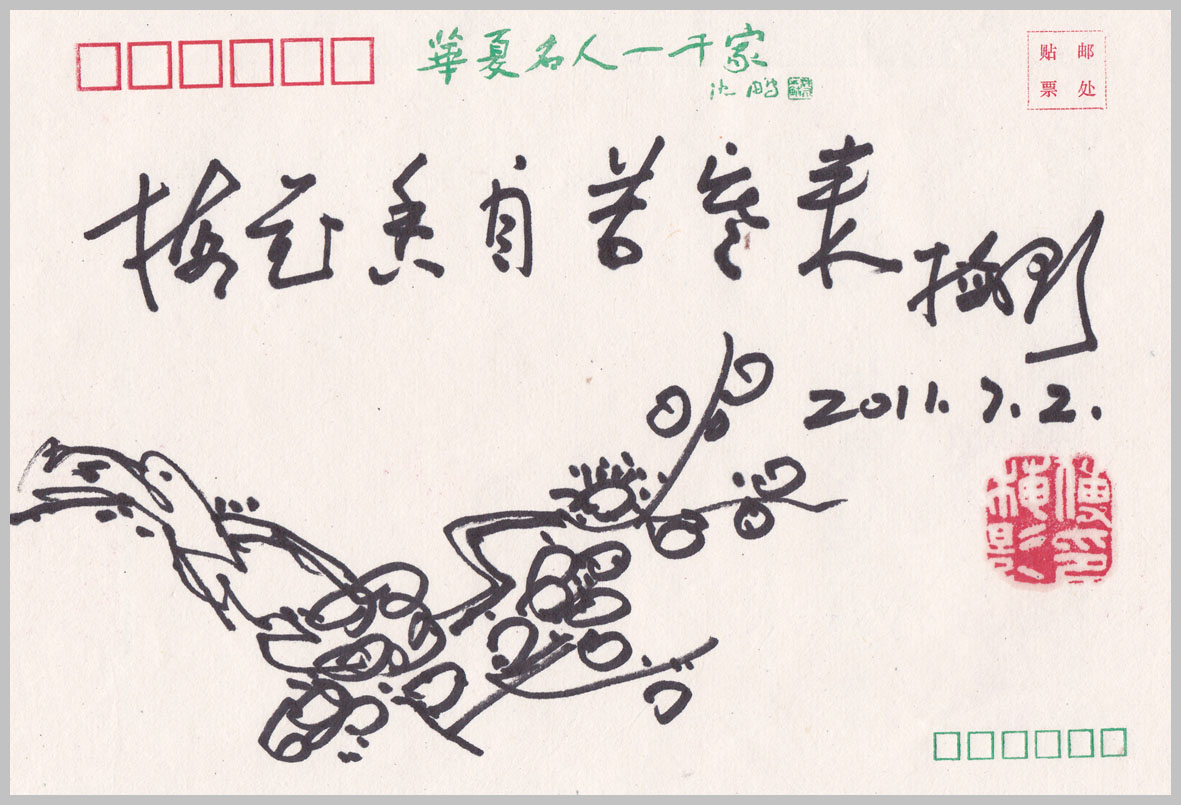 華夏名人一千家
沈鹏
贴 邮
票 处
梅花香自苦寒来
梅影
2011.7.2.